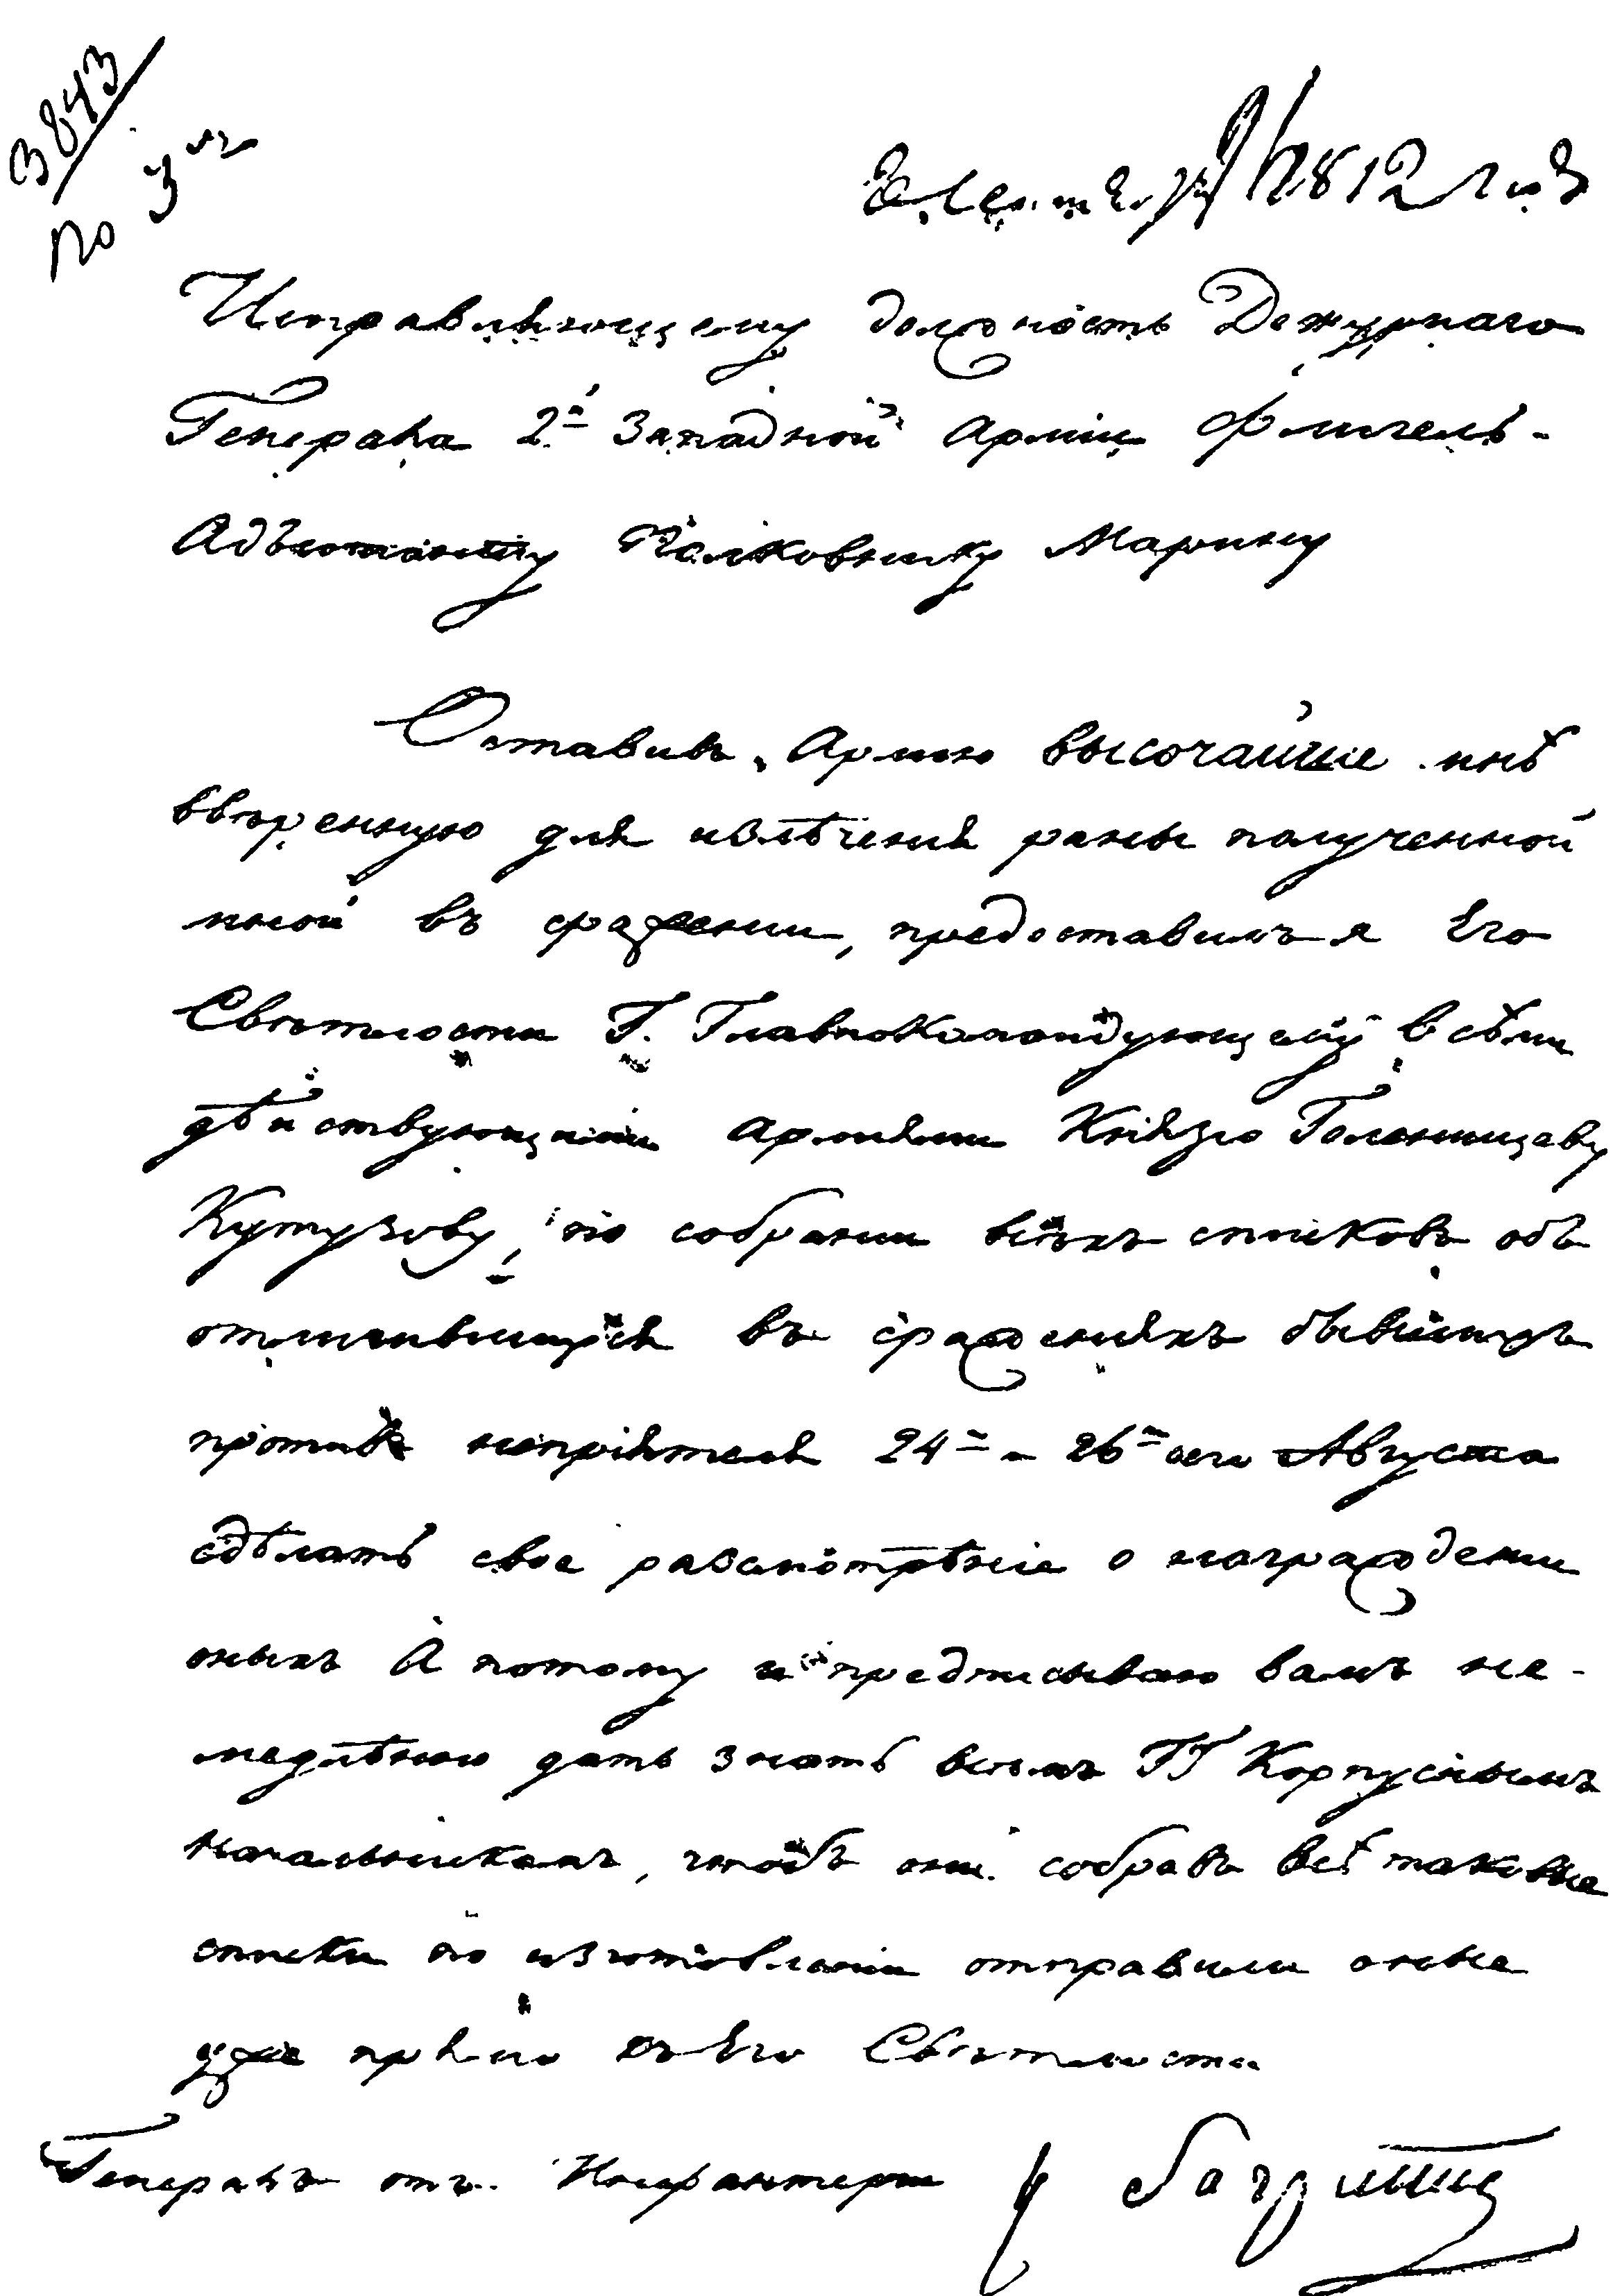 3843
по 3му
Сентября 1812 года
Исправляющему должность Дежурнаго
Генерала 2й Западной Арміи Флигель-
Адъютанту Полковнику Марину
Оставивъ Армію высочайше мнѣ
ввѣренную для излѣченія раны полученной
мной въ сражении, предоставилъ я Его
Свѣтлости Г. Главнокомандующему всѣми
дѣйствующими Арміями Князю Голенищеву
Кутузову, по собрании всѣхъ списковъ объ
отличившихся въ сраженіяхъ бывшихъ
противъ непріятеля 24го и 26го сего Августа
сдѣлать свое разсмотрѣніе о награждении
оныхъ А потому и предписываю вамъ не-
медлѣнно дать знать всѣмъ ГГ Корпуснымъ
Начальникамъ, чтобъ они собравъ всѣ таковые
списки по изготовленіи отправили оные
уже прямо къ Его Свѣтлости
Генералъ отъ Инфантеріи К Багратионъ